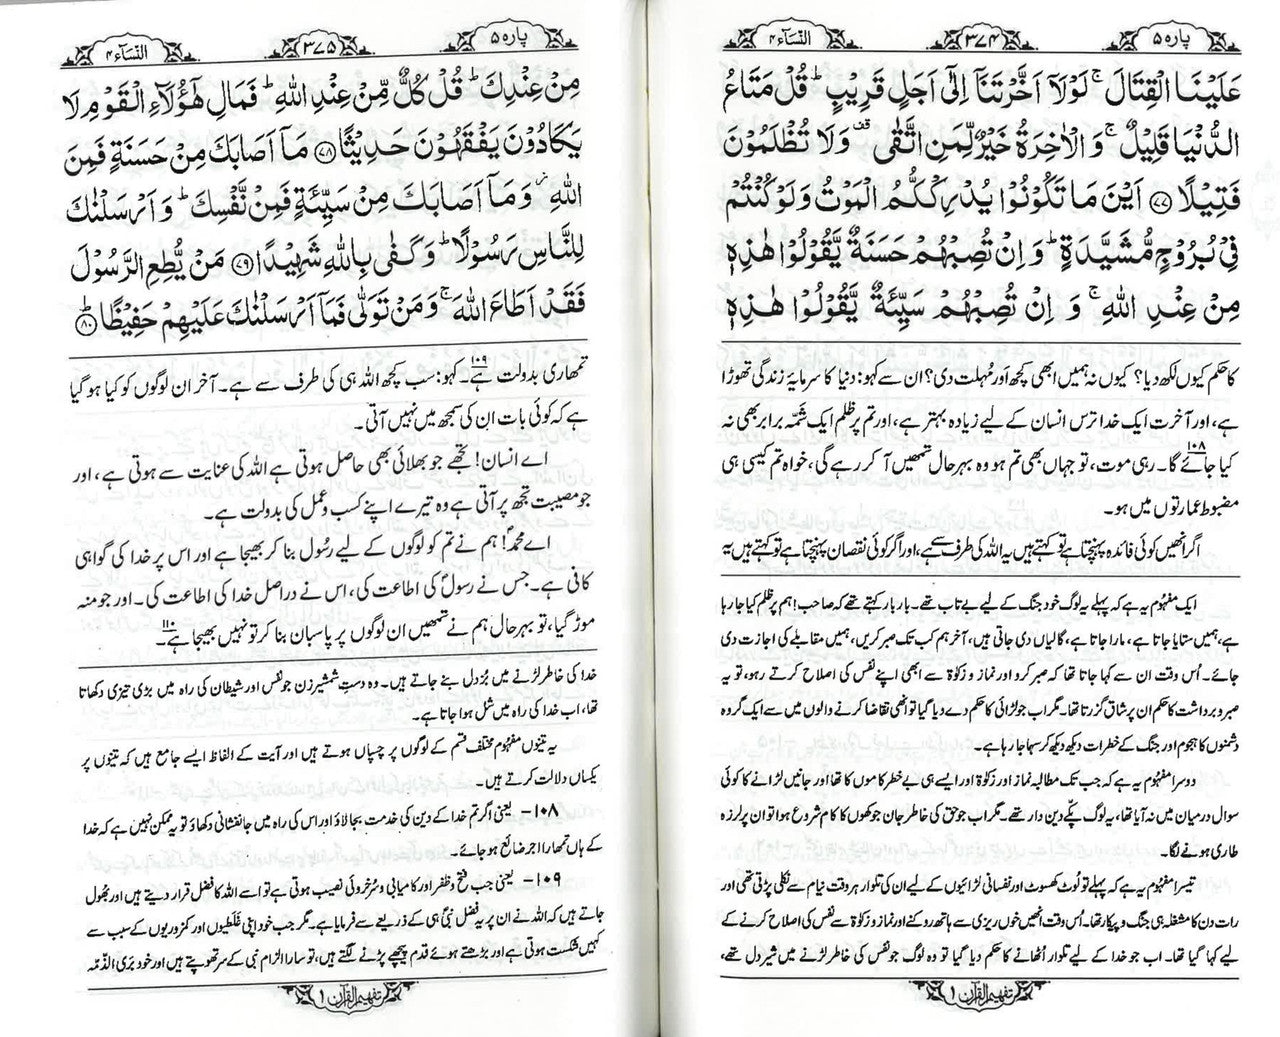 پارہ ۵
۳۷۴
النسآء ۴
عَلَيْنَا الْقِتَالَ ۚ لَوْلَآ اَخَّرْتَنَآ اِلٰٓى اَجَلٍ قَرِيْبٍ ؕ قُلْ مَتَاعُ
الدُّنْيَا قَلِيْلٌ ۚ وَالْاٰخِرَةُ خَيْرٌ لِّمَنِ اتَّقٰى ۟ وَلَا تُظْلَمُوْنَ
فَتِيْلًا ﴿۷۷﴾ اَيْنَ مَا تَكُوْنُوْا يُدْرِكْكُّمُ الْمَوْتُ وَلَوْ كُنْتُمْ
فِيْ بُرُوْجٍ مُّشَيَّدَةٍ ؕ وَاِنْ تُصِبْهُمْ حَسَنَةٌ يَّقُوْلُوْا هٰذِهٖ
مِنْ عِنْدِ اللّٰهِ ۚ وَاِنْ تُصِبْهُمْ سَيِّئَةٌ يَّقُوْلُوْا هٰذِهٖ
کا حکم کیوں لکھ دیا؟ کیوں نہ ہمیں ابھی کچھ اور مُہلت دی؟ ان سے کہو: دنیا کا سرمایۂ زندگی تھوڑا
ہے، اور آخرت ایک خدا ترس انسان کے لیے زیادہ بہتر ہے، اور تم پر ظلم ایک شمّہ برابر بھی نہ
کیا جائے گا۔۱۰۸ رہی موت، تو جہاں بھی تم ہو وہ بہرحال تمھیں آ کر رہے گی، خواہ تم کیسی ہی
مضبوط عمارتوں میں ہو۔
اگر انھیں کوئی فائدہ پہنچتا ہے تو کہتے ہیں یہ اللہ کی طرف سے ہے، اور اگر کوئی نقصان پہنچتا ہے تو کہتے ہیں یہ
ایک مفہُوم یہ ہے کہ پہلے یہ لوگ خود جنگ کے لیے بے تاب تھے۔ بار بار کہتے تھے کہ صاحب! ہم پر ظلم کیا جا رہا
ہے، ہمیں ستایا جاتا ہے، مارا جاتا ہے، گالیاں دی جاتی ہیں، آخر ہم کب تک صبر کریں، ہمیں مقابلے کی اجازت دی
جائے۔ اُس وقت ان سے کہا جاتا تھا کہ صبر کرو اور نماز و زکوٰۃ سے ابھی اپنے نفس کی اصلاح کرتے رہو، تو یہ
صبر و برداشت کا حکم ان پر شاق گزرتا تھا۔ مگر اب جو لڑائی کا حکم دے دیا گیا تو انھی تقاضا کرنے والوں میں سے ایک گروہ
دشمنوں کا ہجوم اور جنگ کے خطرات دیکھ دیکھ کر سہما جا رہا ہے۔
دوسرا مفہُوم یہ ہے کہ جب تک مطالبہ نماز اور زکوٰۃ اور ایسے ہی بے خطر کاموں کا تھا اور جانیں لڑانے کا کوئی
سوال درمیان میں نہ آیا تھا، یہ لوگ پکّے دین دار تھے۔ مگر اب جو حق کی خاطر جان جوکھوں کا کام شروع ہوا تو ان پر لرزہ
طاری ہونے لگا۔
تیسرا مفہُوم یہ ہے کہ پہلے تو لُوٹ کھسوٹ اور نفسانی لڑائیوں کے لیے ان کی تلوار ہر وقت نیام سے نکلی پڑتی تھی اور
رات دن کا مشغلہ ہی جنگ و پیکار تھا۔ اُس وقت انھیں خوں ریزی سے ہاتھ روکنے اور نماز و زکوٰۃ سے نفس کی اصلاح کرنے کے
لیے کہا گیا تھا۔ اب جو خدا کے لیے تلوار اُٹھانے کا حکم دیا گیا تو وہ لوگ جو نفس کی خاطر لڑنے میں شیر دل تھے،
تفہیم القرآن ۱
پارہ ۵
۳۷۵
النسآء ۴
مِنْ عِنْدِكَ ؕ قُلْ كُلٌّ مِّنْ عِنْدِ اللّٰهِ ؕ فَمَالِ هٰٓؤُلَآءِ الْقَوْمِ لَا
يَكَادُوْنَ يَفْقَهُوْنَ حَدِيْثًا ﴿۷۸﴾ مَآ اَصَابَكَ مِنْ حَسَنَةٍ فَمِنَ
اللّٰهِ ؗ وَمَآ اَصَابَكَ مِنْ سَيِّئَةٍ فَمِنْ نَّفْسِكَ ؕ وَاَرْسَلْنٰكَ
لِلنَّاسِ رَسُوْلًا ؕ وَكَفٰى بِاللّٰهِ شَهِيْدًا ﴿۷۹﴾ مَنْ يُّطِعِ الرَّسُوْلَ
فَقَدْ اَطَاعَ اللّٰهَ ۚ وَمَنْ تَوَلّٰى فَمَآ اَرْسَلْنٰكَ عَلَيْهِمْ حَفِيْظًا ﴿۸۰﴾ؕ
تمھاری بدولت ہے۔۱۰۹ کہو: سب کچھ اللہ ہی کی طرف سے ہے۔ آخر ان لوگوں کو کیا ہو گیا
ہے کہ کوئی بات ان کی سمجھ میں نہیں آتی۔
اے انسان! تجھے جو بھلائی بھی حاصل ہوتی ہے اللہ کی عنایت سے ہوتی ہے، اور
جو مصیبت تجھ پر آتی ہے وہ تیرے اپنے کسب و عمل کی بدولت ہے۔
اے محمدؐ! ہم نے تم کو لوگوں کے لیے رسُول بنا کر بھیجا ہے اور اس پر خدا کی گواہی
کافی ہے۔ جس نے رسولؐ کی اطاعت کی، اس نے دراصل خدا کی اطاعت کی۔ اور جو منہ
موڑ گیا، تو بہرحال ہم نے تمھیں ان لوگوں پر پاسبان بنا کر تو نہیں بھیجا ہے۔۱۱۰
خدا کی خاطر لڑنے میں بُزدل بنے جاتے ہیں۔ وہ دستِ شمشیر زن جو نفس اور شیطان کی راہ میں بڑی تیزی دکھاتا
تھا، اب خدا کی راہ میں شل ہوا جاتا ہے۔
یہ تینوں مفہُوم مختلف قسم کے لوگوں پر چسپاں ہوتے ہیں اور آیت کے الفاظ ایسے جامع ہیں کہ تینوں پر
یکساں دلالت کرتے ہیں۔
۱۰۸– یعنی اگر تم خدا کے دین کی خدمت بجا لاؤ اور اس کی راہ میں جانفشانی دکھاؤ تو یہ ممکن نہیں ہے کہ خدا
کے ہاں تمھارا اجر ضائع ہو جائے۔
۱۰۹– یعنی جب فتح و ظفر اور کامیابی و سُرخروئی نصیب ہوتی ہے تو اسے اللہ کا فضل قرار دیتے ہیں اور بھُول
جاتے ہیں کہ اللہ نے ان پر یہ فضل نبیؐ ہی کے ذریعے سے فرمایا ہے۔ مگر جب خود اپنی غلطیوں اور کمزوریوں کے سبب سے
کہیں شکست ہوتی ہے اور بڑھتے ہوئے قدم پیچھے پڑنے لگتے ہیں، تو سارا الزام نبی کے سر تھوپتے ہیں اور خود بَری الذّمّہ
تفہیم القرآن ۱